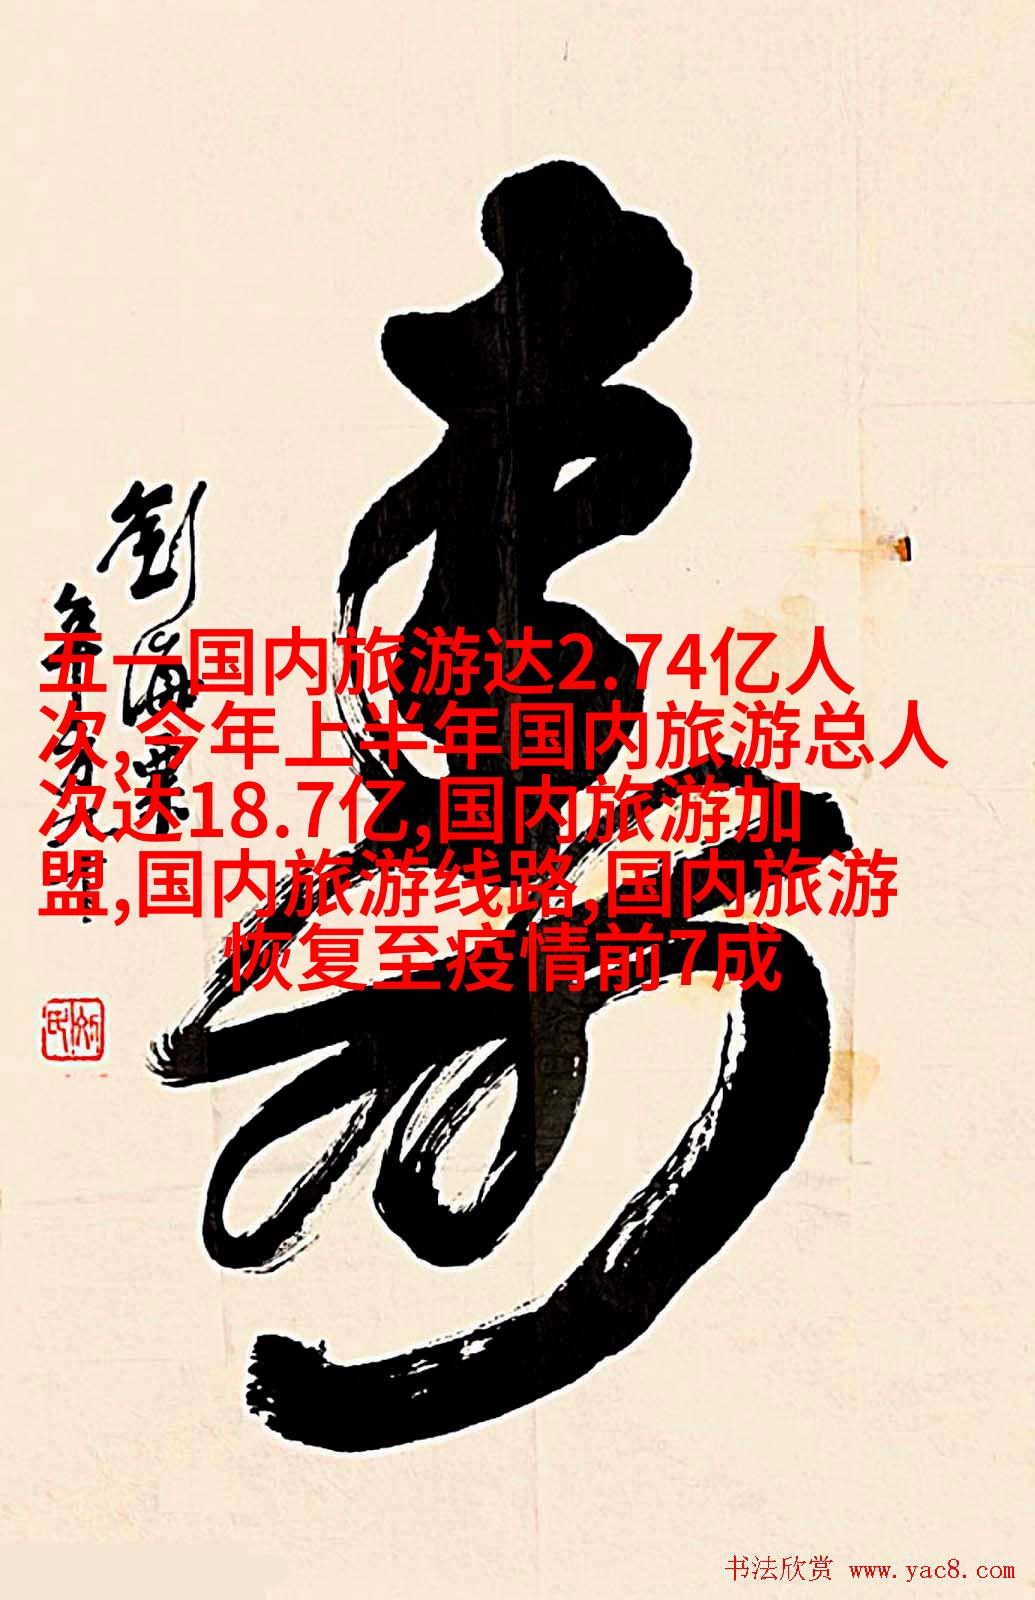 寿
劉海粟
年方九十
五一国内旅游达2.74亿人
次,今年上半年国内旅游总人
次达18.7亿,国内旅游加
盟,国内旅游线路,国内旅游
恢复至疫情前7成
书法欣赏 www.yac8.com